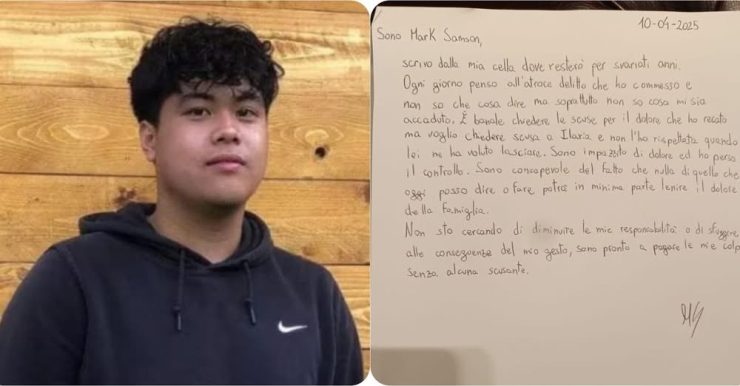 10-04-2025
Sono Mark Samson,
scrivo dalla mia cella dove resterò per svariati anni.
Ogni giorno penso all'atroce delitto che ho commesso e
non so che cosa dire ma soprattutto non so cosa mi sia
accaduto. È banale chiedere le scuse per il dolore che ho recato
ma voglio chiedere scusa a Ilaria e non l'ho rispettata quando
lei mi ha voluto lasciare. Sono impazzito di dolore ed ho perso
il controllo. Sono consapevole del fatto che nulla di quello che
oggi posso dire o fare potrà in minima parte lenire il dolore
della famiglia.
Non sto cercando di diminuire le mie responsabilità o di sfuggire
alle conseguenze del mio gesto, sono pronto a pagare le mie colp
senza alcuna scusante.
MS